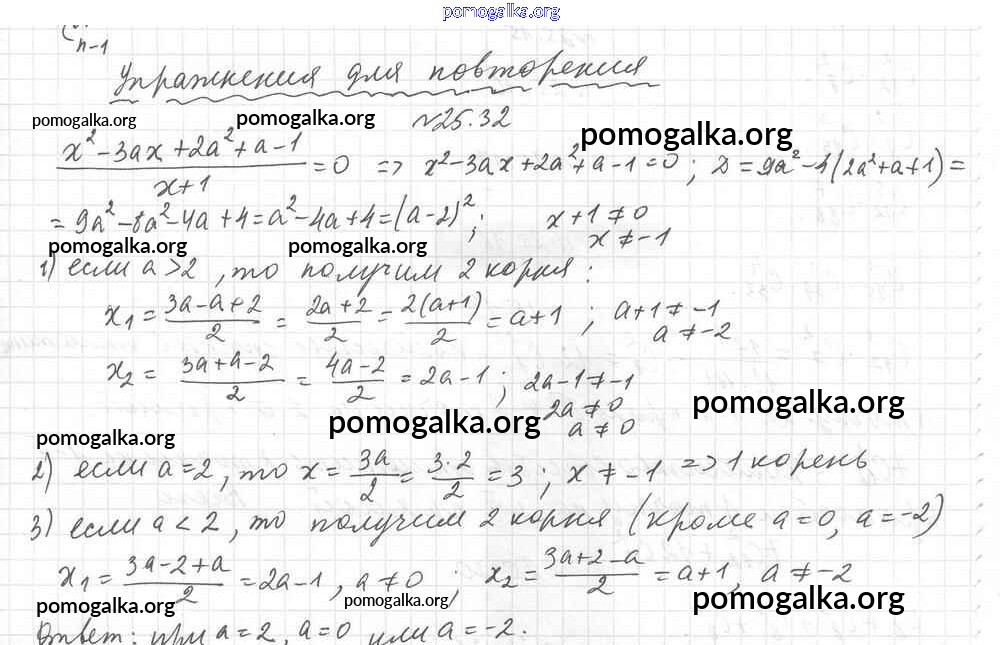 pomogalka.org
n-1
Упражнения для повторения
pomogalka.org pomogalka.org №25.32 pomogalka.org
(x² - 3ax + 2a² + a - 1)/(x+1) = 0 => x² - 3ax + 2a² + a - 1 = 0 ; D = 9a² - 4(2a² + a + 1) =
= 9a² - 8a² - 4a + 4 = a² - 4a + 4 = (a-2)² ; x+1 ≠ 0
x ≠ -1
pomogalka.org pomogalka.org
1) если a > 2 , то получим 2 корня :
x₁ = (3a-a+2)/2 = (2a+2)/2 = 2(a+1)/2 = a+1 ; a+1 ≠ -1
a ≠ -2
x₂ = (3a+a-2)/2 = (4a-2)/2 = 2a-1 ; 2a-1 ≠ -1
2a ≠ 0
a ≠ 0
pomogalka.org pomogalka.org pomogalka.org
2) если a = 2 , то x = 3a/2 = 3·2/2 = 3 ; x ≠ -1 => 1 корень
3) если a < 2 , то получим 2 корня (кроме a=0, a=-2)
x₁ = (3a-2+a)/2 = 2a-1 , a ≠ 0 ; x₂ = (3a+2-a)/2 = a+1, a ≠ -2
pomogalka.org pomogalka.org pomogalka.org
Ответ: при a=2, a=0 или a=-2.